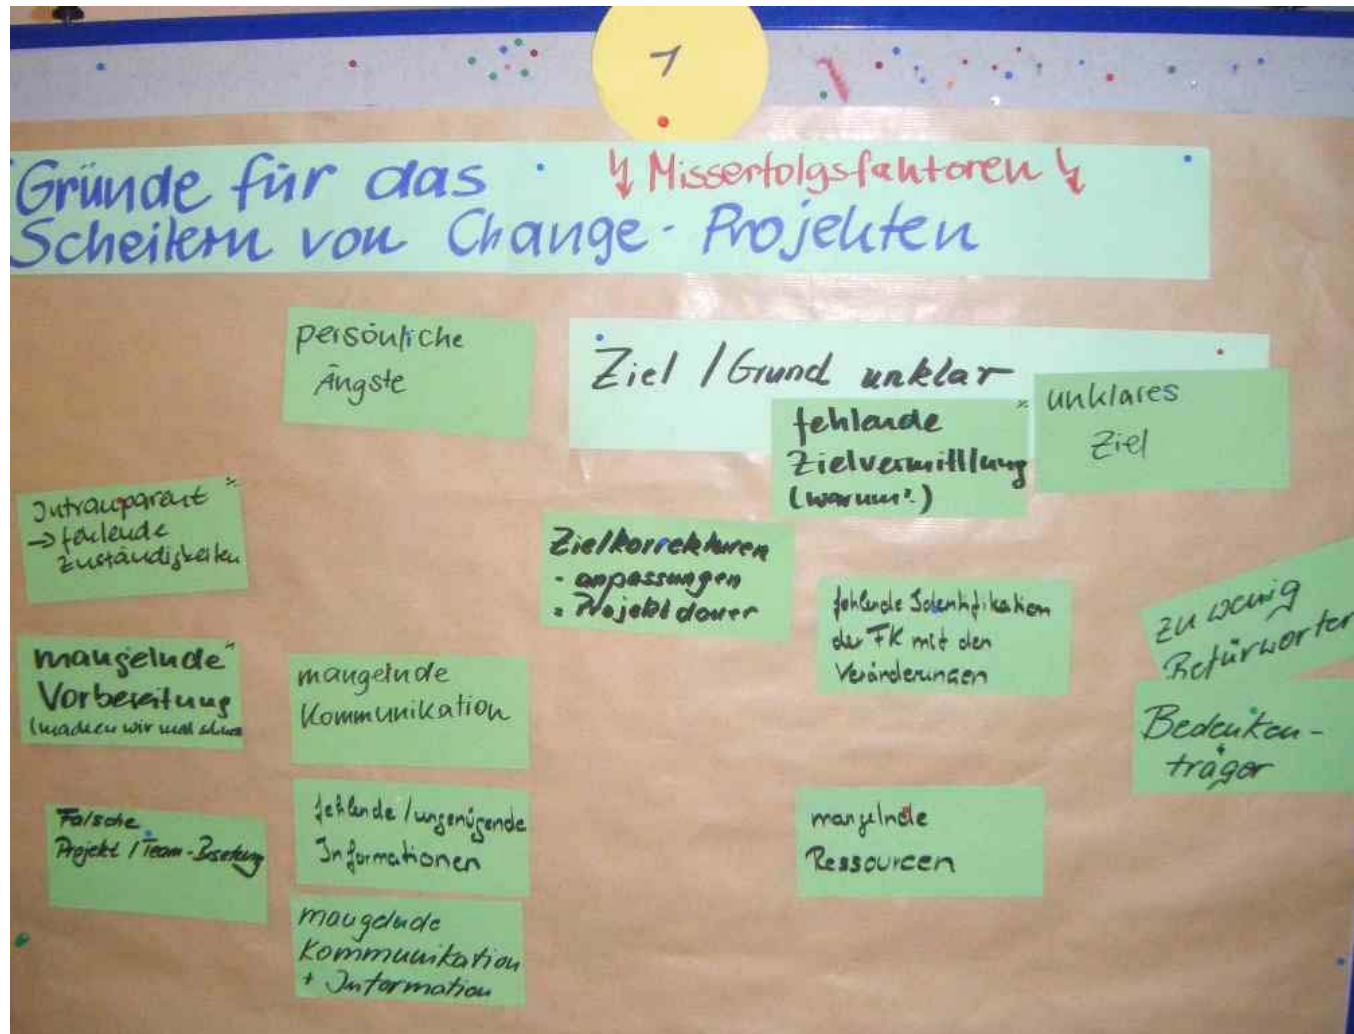 1
Gründe für das
Scheitern von Change-Projekten
Misserfolgsfaktoren
persönliche
Ängste
Ziel / Grund unklar
fehlende
Zielvermittlung
(warum?)
unklares
Ziel
Intransparent
→ fehlende
Zuständigkeiten
Zielkorrekturen
- anpassungen
= Projektdauer
fehlende Identifikation
der FK mit den
Veränderungen
zu wenig
Befürworter
mangelnde
Vorbereitung
(machen wir mal
mangelnde
Kommunikation
Bedenken-
träger
Falsche
Projekt / Team-Besetzung
fehlende / ungenügende
Informationen
mangelnde
Ressourcen
mangelnde
Kommunikation
+ Information